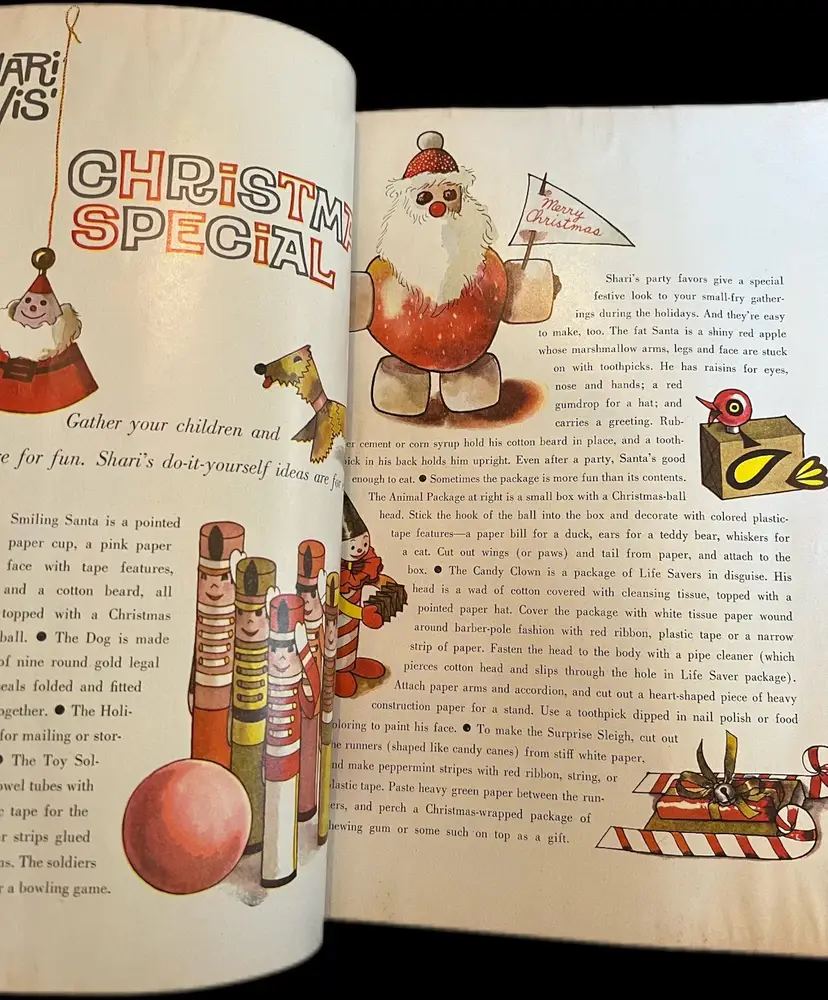 ARi
ViS'
CHRiSTMA
SPECiAL
Gather your children and
re for fun. Shari's do-it-yourself ideas are for
Smiling Santa is a pointed
paper cup, a pink paper
face with tape features,
and a cotton beard, all
topped with a Christmas
ball. ● The Dog is made
of nine round gold legal
seals folded and fitted
together. ● The Holi-
for mailing or stor-
● The Toy Sol-
owel tubes with
c tape for the
r strips glued
ns. The soldiers
r a bowling game.
Merry
Christmas
Shari's party favors give a special
festive look to your small-fry gather-
ings during the holidays. And they're easy
to make, too. The fat Santa is a shiny red apple
whose marshmallow arms, legs and face are stuck
on with toothpicks. He has raisins for eyes,
nose and hands; a red
gumdrop for a hat; and
carries a greeting. Rub-
er cement or corn syrup hold his cotton beard in place, and a tooth-
ick in his back holds him upright. Even after a party, Santa's good
enough to eat. ● Sometimes the package is more fun than its contents.
The Animal Package at right is a small box with a Christmas-ball
head. Stick the hook of the ball into the box and decorate with colored plastic-
tape features—a paper bill for a duck, ears for a teddy bear, whiskers for
a cat. Cut out wings (or paws) and tail from paper, and attach to the
box. ● The Candy Clown is a package of Life Savers in disguise. His
head is a wad of cotton covered with cleansing tissue, topped with a
pointed paper hat. Cover the package with white tissue paper wound
around barber-pole fashion with red ribbon, plastic tape or a narrow
strip of paper. Fasten the head to the body with a pipe cleaner (which
pierces cotton head and slips through the hole in Life Saver package).
Attach paper arms and accordion, and cut out a heart-shaped piece of heavy
construction paper for a stand. Use a toothpick dipped in nail polish or food
oloring to paint his face. ● To make the Surprise Sleigh, cut out
ne runners (shaped like candy canes) from stiff white paper,
nd make peppermint stripes with red ribbon, string, or
lastic tape. Paste heavy green paper between the run-
ers, and perch a Christmas-wrapped package of
hewing gum or some such on top as a gift.